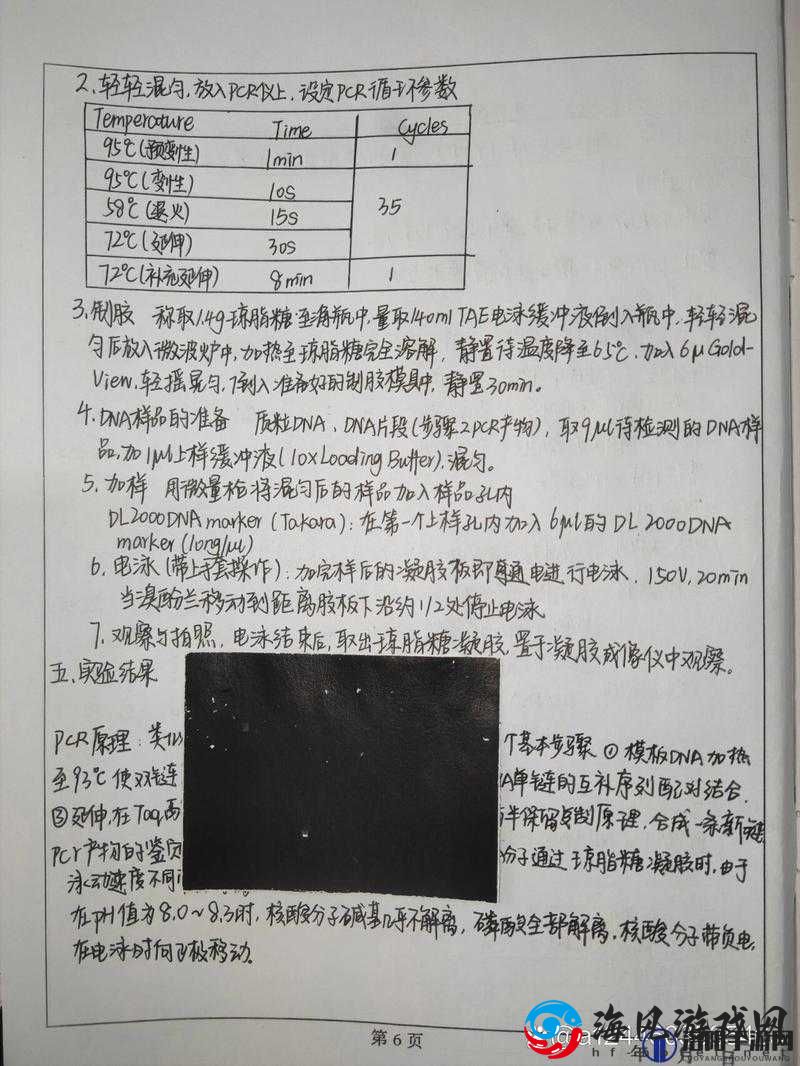 2、轻轻混匀,放入PCR仪上,设定PCR循环参数
Temperature Time Cycles
95℃(预变性) 1min 1
95℃(变性) 10s
58℃(退火) 15s 35
72℃(延伸) 30s
72℃(补充延伸) 8min 1
3、制胶 称取1.4g琼脂糖至海瓶中,量取140ml TAE电泳缓冲液倒入瓶中,轻轻混
匀后放入微波炉中,加热至琼脂糖完全溶解,静置待温度降至65℃,加入6μGold-
View,轻摇晃匀,倒入准备好的制胶模具中,静置30min。
4、DNA样品的准备 质粒DNA、DNA片段(步骤2PCR产物),取9μl待检测的DNA样
品,加1μl上样缓冲液(10xLoading Buffer),混匀。
5、加样 用微量枪将混匀后的样品加入样品孔内
DL2000DNA marker (Takara):在第一个上样孔内加入6μl的DL2000DNA
marker(10ng/μl)
6、电泳(带上手套操作):加完样后的凝胶板即通电进行电泳,150V,20min
当溴酚兰移动到距离胶板下沿约1/2处停止电泳
7、观察与拍照,电泳结束后,取出琼脂糖凝胶,置于凝胶成像仪中观察。
五、实验结果
PCR原理:类似 个基本步骤①模板DNA加热
至93℃使双链 A单链的互补序列配对结合.
③延伸,在Taq 半保留复制原理,合成一条新链
PCR产物的鉴定 分子通过琼脂糖凝胶时,由于
泳动速度不同
在pH值为8.0~8.3时,核酸分子碱基几乎不解离,磷酸全部解离,核酸分子带负电,
在电泳时向正极移动.
第6页
海风游戏网